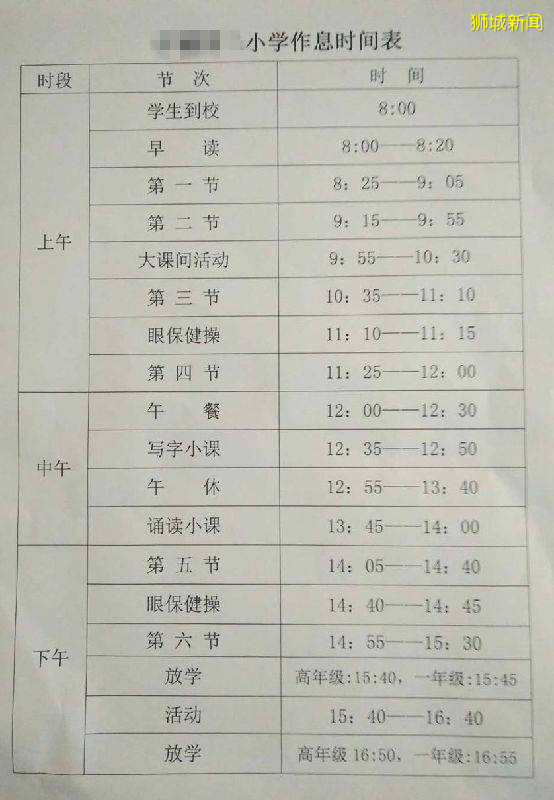 狮城新闻
小学作息时间表
时段 节 次 时 间
上午
学生到校 8:00
早 读 8:00——8:20
第 一 节 8: 25——9: 05
第 二 节 9: 15——9: 55
大课间活动 9: 55——10: 30
第 三 节 10: 35——11: 10
眼保健操 11: 10——11: 15
第 四 节 11: 25——12: 00
中午
午 餐 12: 00——12: 30
写字小课 12: 35——12: 50
午 休 12: 55——13: 40
诵读小课 13: 45——14: 00
下午
第 五 节 14: 05——14: 40
眼保健操 14: 40——14: 45
第 六 节 14: 55——15: 30
放学 高年级:15:40, 一年级:15:45
活动 15: 40——16: 40
放学 高年级16:50, 一年级:16:55